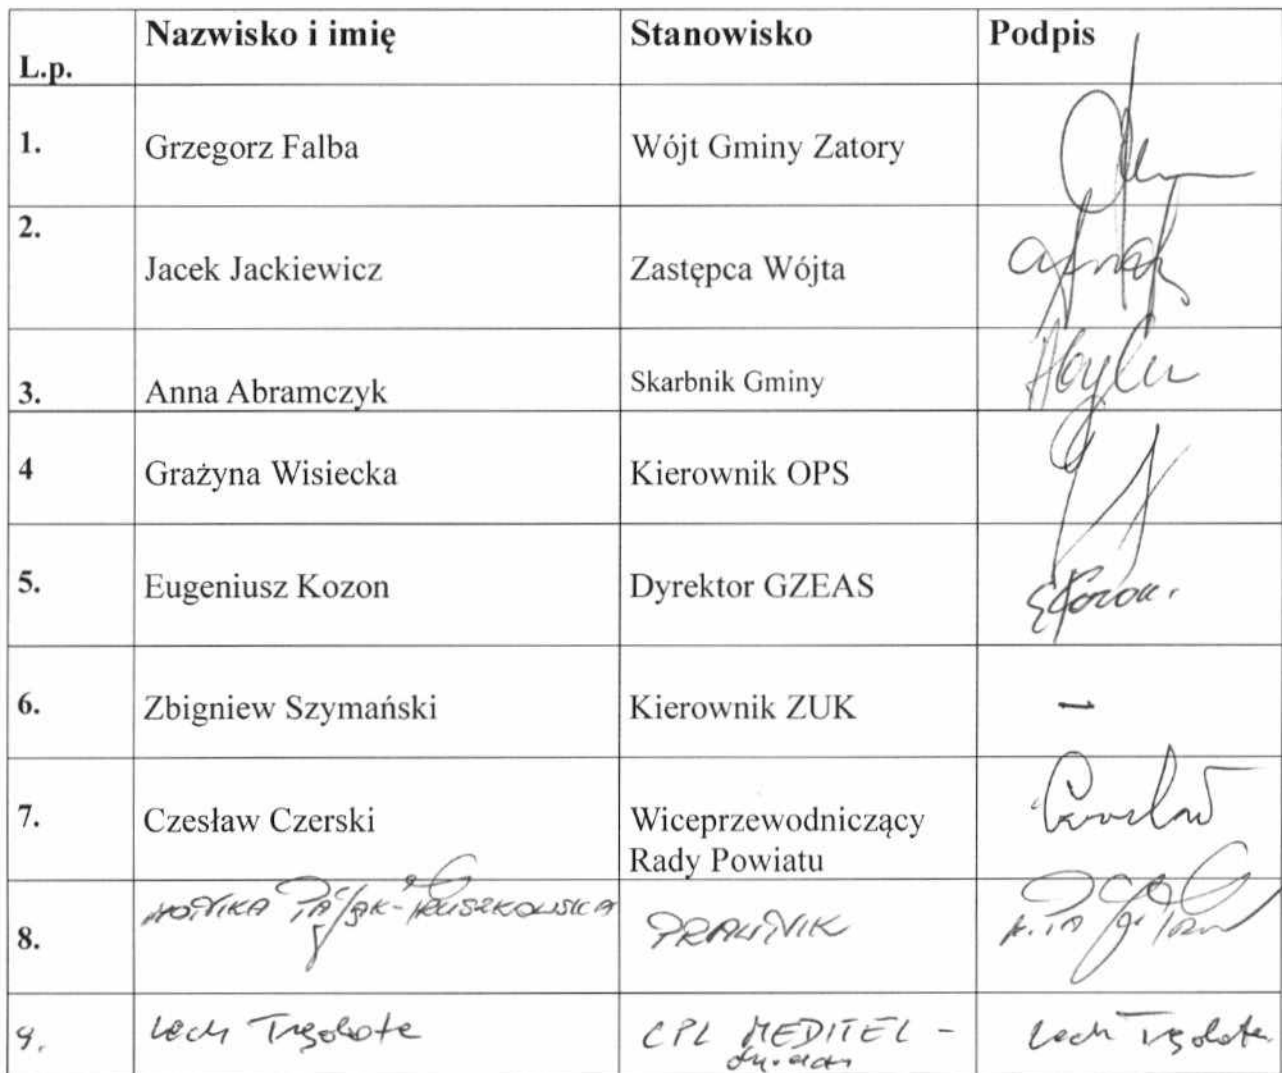 L.p. Nazwisko i imię Stanowisko Podpis
1. Grzegorz Falba Wójt Gminy Zatory
2. Jacek Jackiewicz Zastępca Wójta
3. Anna Abramczyk Skarbnik Gminy
4 Grażyna Wisiecka Kierownik OPS
5. Eugeniusz Kozon Dyrektor GZEAS EKozon.
6. Zbigniew Szymański Kierownik ZUK
7. Czesław Czerski Wiceprzewodniczący
Rady Powiatu
8. MONIKA PRAWNIK
9. Lech CPL MEDITEL - Lech